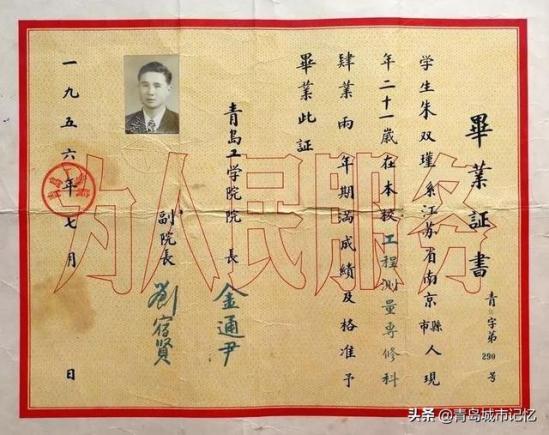 畢業証書
青 字第290号
学生朱双瑾系江苏省南京市縣人現
年二十一歲在本校工程測量專修科
肄業兩年期滿成績及格准予
畢業此証
青島工学院院長 金通尹
副院長 劉宿賢
一九五六年七月 日
为人民服务
头条 @青岛城市记忆